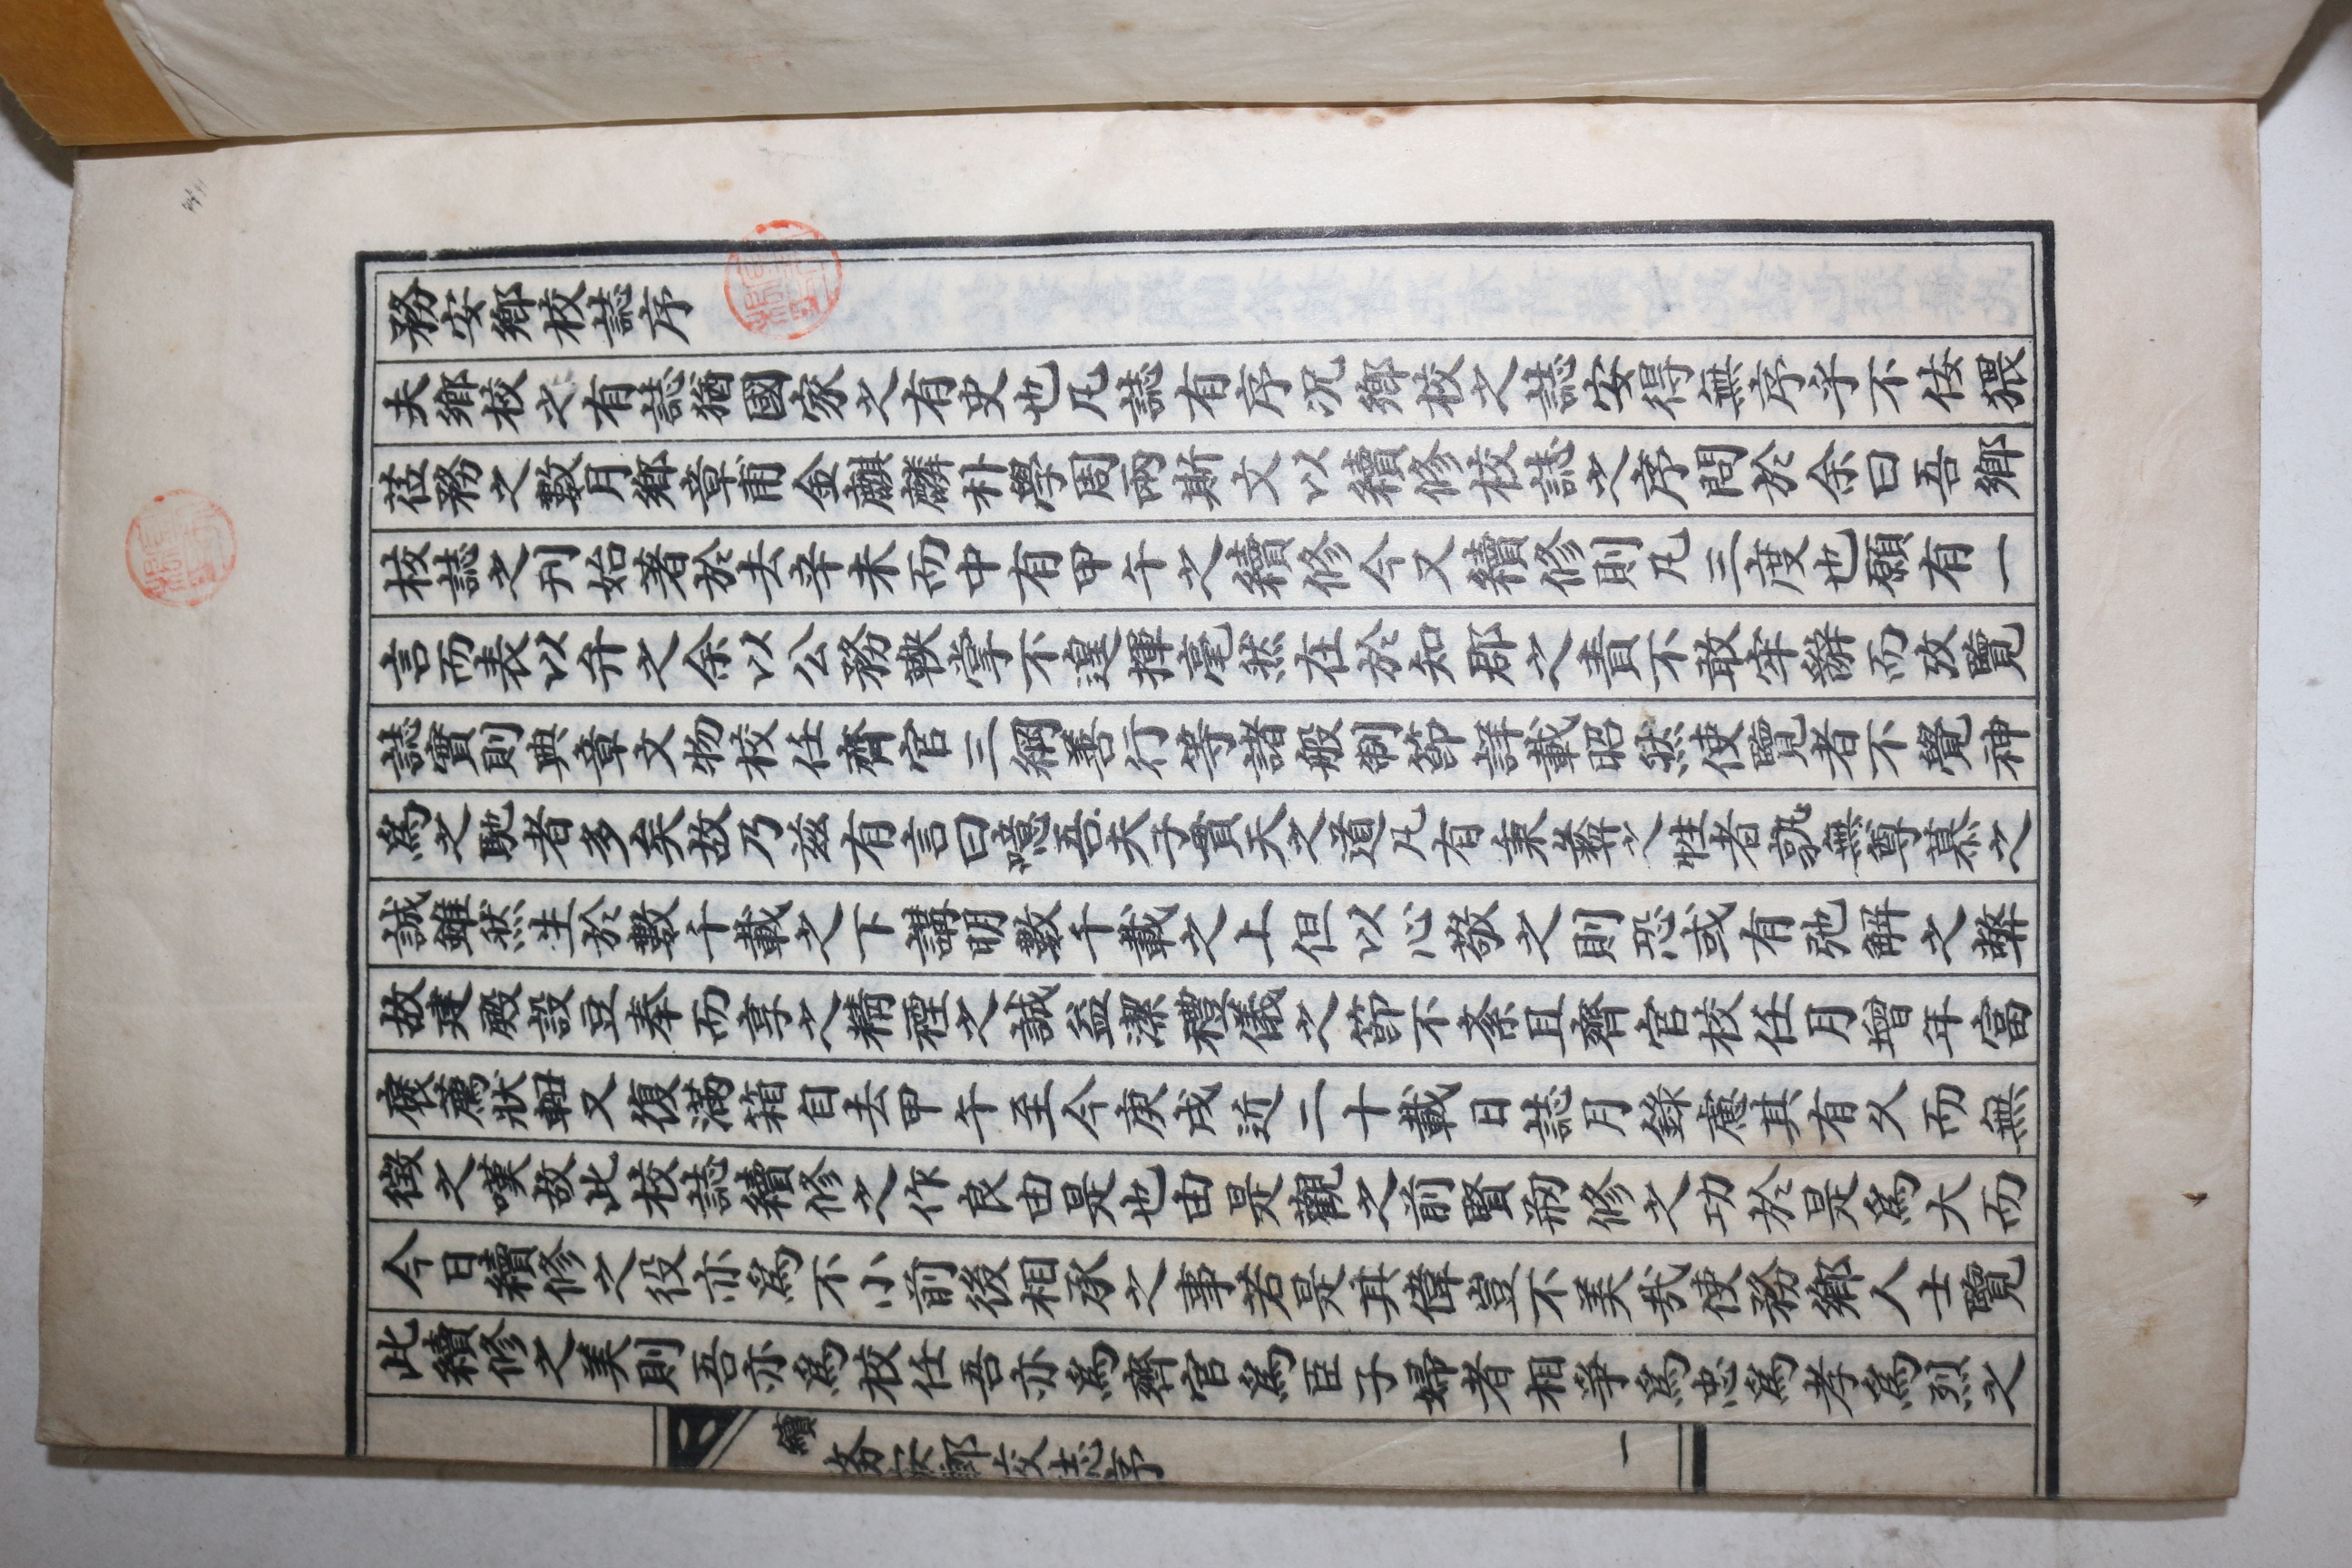 務安鄉校誌序
夫鄉校之有誌猶國家之有史也凡誌有序况鄉校之誌安得無序乎不侫猥
莅務之數月鄉章甫金麒麟朴學周兩斯文以續修校誌之序問於余曰吾鄉
校誌之刊始著於去辛未而中有甲午之續修今又續修則凡三度也願有一
言而表以弁之余以公務鞅掌不遑揮毫然在於知郡之責不敢牢辭而攷覽
誌實則典章文物校任齊官三綱善行等諸般制節詳載昭然使覽者不覺神
爲之馳者多矣故乃玆有言曰噫吾夫子貫天之道凡有秉彜之性者孰無尊慕之
誠雖然生於數千載之下講明數千載之上但以心敬之則恐或有弛解之弊
故建殿設豆奉而享之精禋之誠益潔禮儀之節不紊且齊官校任月增年富
褒薦狀軸又復滿箱自去甲午至今庚戌近二十載日誌月錄慮其有久而無
徵之嘆故此校誌續修之作良由是也由是觀之前賢刱修之功於是爲大而
今日續修之役亦爲不小前後相承之事若是其偉豈不美哉使務鄉人士覽
此續修之美則吾亦爲校任吾亦爲齊官爲臣子婦者相爭爲忠爲孝爲烈之
續 務安鄉校誌序 一